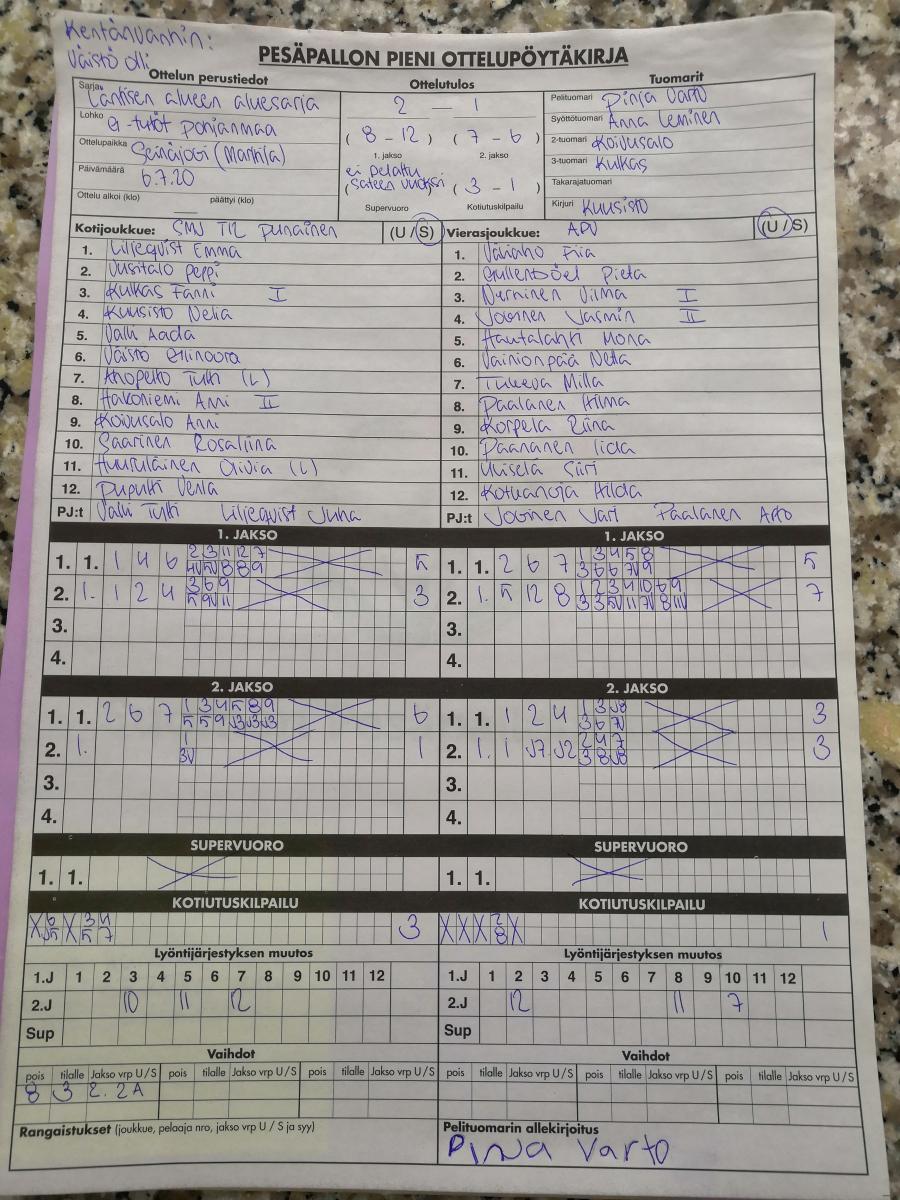 Kentänvanhin:
Väistö Olli
PESÄPALLON PIENI OTTELUPÖYTÄKIRJA
Ottelun perustiedot Ottelutulos Tuomarit
Sarja Läntisen alueen aluesarja 2 — 1 Pelituomari Pinja Varto
Lohko E-tytöt pohjanmaa (8 - 12) (7 - 6) Syöttötuomari Anna Leminen
Ottelupaikka Seinäjoki (Marttila) 1. jakso 2. jakso 2-tuomari Koivusalo
Päivämäärä 6.7.20 ei pelattu sateen vuoksi (3 - 1) 3-tuomari Kulkas
Ottelu alkoi (klo) päättyi (klo) Supervuoro Kotiutuskilpailu Takarajatuomari
Kirjuri Kuusisto
Kotijoukkue: SMJ T12 punainen (U / S) Vierasjoukkue: APV (U / S)
1. Liljeqvist Emma 1. Väliaho Fiia
2. Uusitalo Peppi 2. Gullentöel Pieta
3. Kulkas Fanni I 3. Nurminen Vilma I
4. Kuusisto Nelia 4. Joonen Jasmin II
5. Valli Aada 5. Hautalahti Mona
6. Väistö Ellinoora 6. Vainionpää Nella
7. Ahopelto Tutti (L) 7. Tuleeva Milla
8. Hakoniemi Anni II 8. Paalanen Hilma
9. Koivusalo Anni 9. Korpela Riina
10. Saarinen Rosaliina 10. Paananen Iida
11. Huusulainen Olivia (L) 11. Uusela Siiri
12. Puputti Venla 12. Kotkanoja Hilda
PJ:t Valli Tutti Liljeqvist Juha PJ:t Joonen Jari Paalanen Arto
1. JAKSO 1. JAKSO
1. 1. 1 4 6 2 3 11 12 7 5 1. 1. 2 6 7 1 3 4 5 8 5
4V 5V 8 8 9 3 6 6 7V 9
2. 1. 1 2 4 3 6 9 3 2. 1. 5 12 8 1 2 3 4 10 6 9 7
5 9V 11 3 3 5V 11 7V 8 11V
3. 3.
4. 4.
2. JAKSO 2. JAKSO
1. 1. 2 6 7 1 3 4 5 8 9 6 1. 1. 1 2 4 1 3 J8 3
5 5 9 J3 J3 J3 3 6 7V
2. 1. 1 1 2. 1. 1 J7 J2 2 4 7 3
3V 3 8 J8
3. 3.
4. 4.
SUPERVUORO SUPERVUORO
1. 1. 1. 1.
KOTIUTUSKILPAILU KOTIUTUSKILPAILU
X 6 X 3 4 3 X X X 7 X 1
J5 5 7 8
Lyöntijärjestyksen muutos Lyöntijärjestyksen muutos
1.J 1 2 3 4 5 6 7 8 9 10 11 12 1.J 1 2 3 4 5 6 7 8 9 10 11 12
2.J 10 11 12 2.J 12 11 7
Sup Sup
Vaihdot Vaihdot
pois tilalle Jakso vrp U / S pois tilalle Jakso vrp U / S pois tilalle Jakso vrp U / S pois tilalle Jakso vrp U / S pois tilalle Jakso vrp U / S pois tilalle Jakso vrp U / S
8 J3 2. 2A
Rangaistukset (joukkue, pelaaja nro, jakso vrp U / S ja syy) Pelituomarin allekirjoitus
Pinja Varto